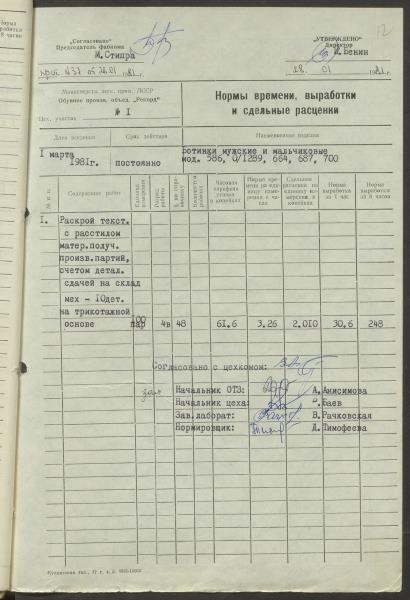 12
„Согласовано"
Председатель фабкома
М.Стипра
„УТВЕРЖДЕНО"
Директор
И.Бенин
28. 01 1981 г.
Министерство легк. пром. ЛССР
Обувное произв. объед. „Рекорд"
Цех, участок № I
Нормы времени, выработки
и сдельные расценки
Дата введения
Срок действия
Наименование изделия
I марта
1981г. постоянно
Ботинки мужские и мальчиковые
мод. 586, 0/1289, 664, 687, 700
№ п. п.
Содержание работ
Единица измерения
Разряд работы
Часовая тарифная ставка в копейках
Норма времени на единицу измерения в часах
Сдельная расценка на единицу измерения в копейках
Норма выработки за 1 час
Норма выработки за 8 часов
I. Раскрой текст.
с расстилом
матер.получ.
произв.партий,
счетом детал.
сдачей на склад
мех - 10дет.
на трикотажной
основе 100 пар 4в 48 61.6 3.26 2.010 30.6 248
Согласовано с цехкомом:
Начальник ОТЗ: А.Анисимова
Начальник цеха: Баев
Зав.лаборат: В.Рачковская
Нормировщик: Д.Тимофеева